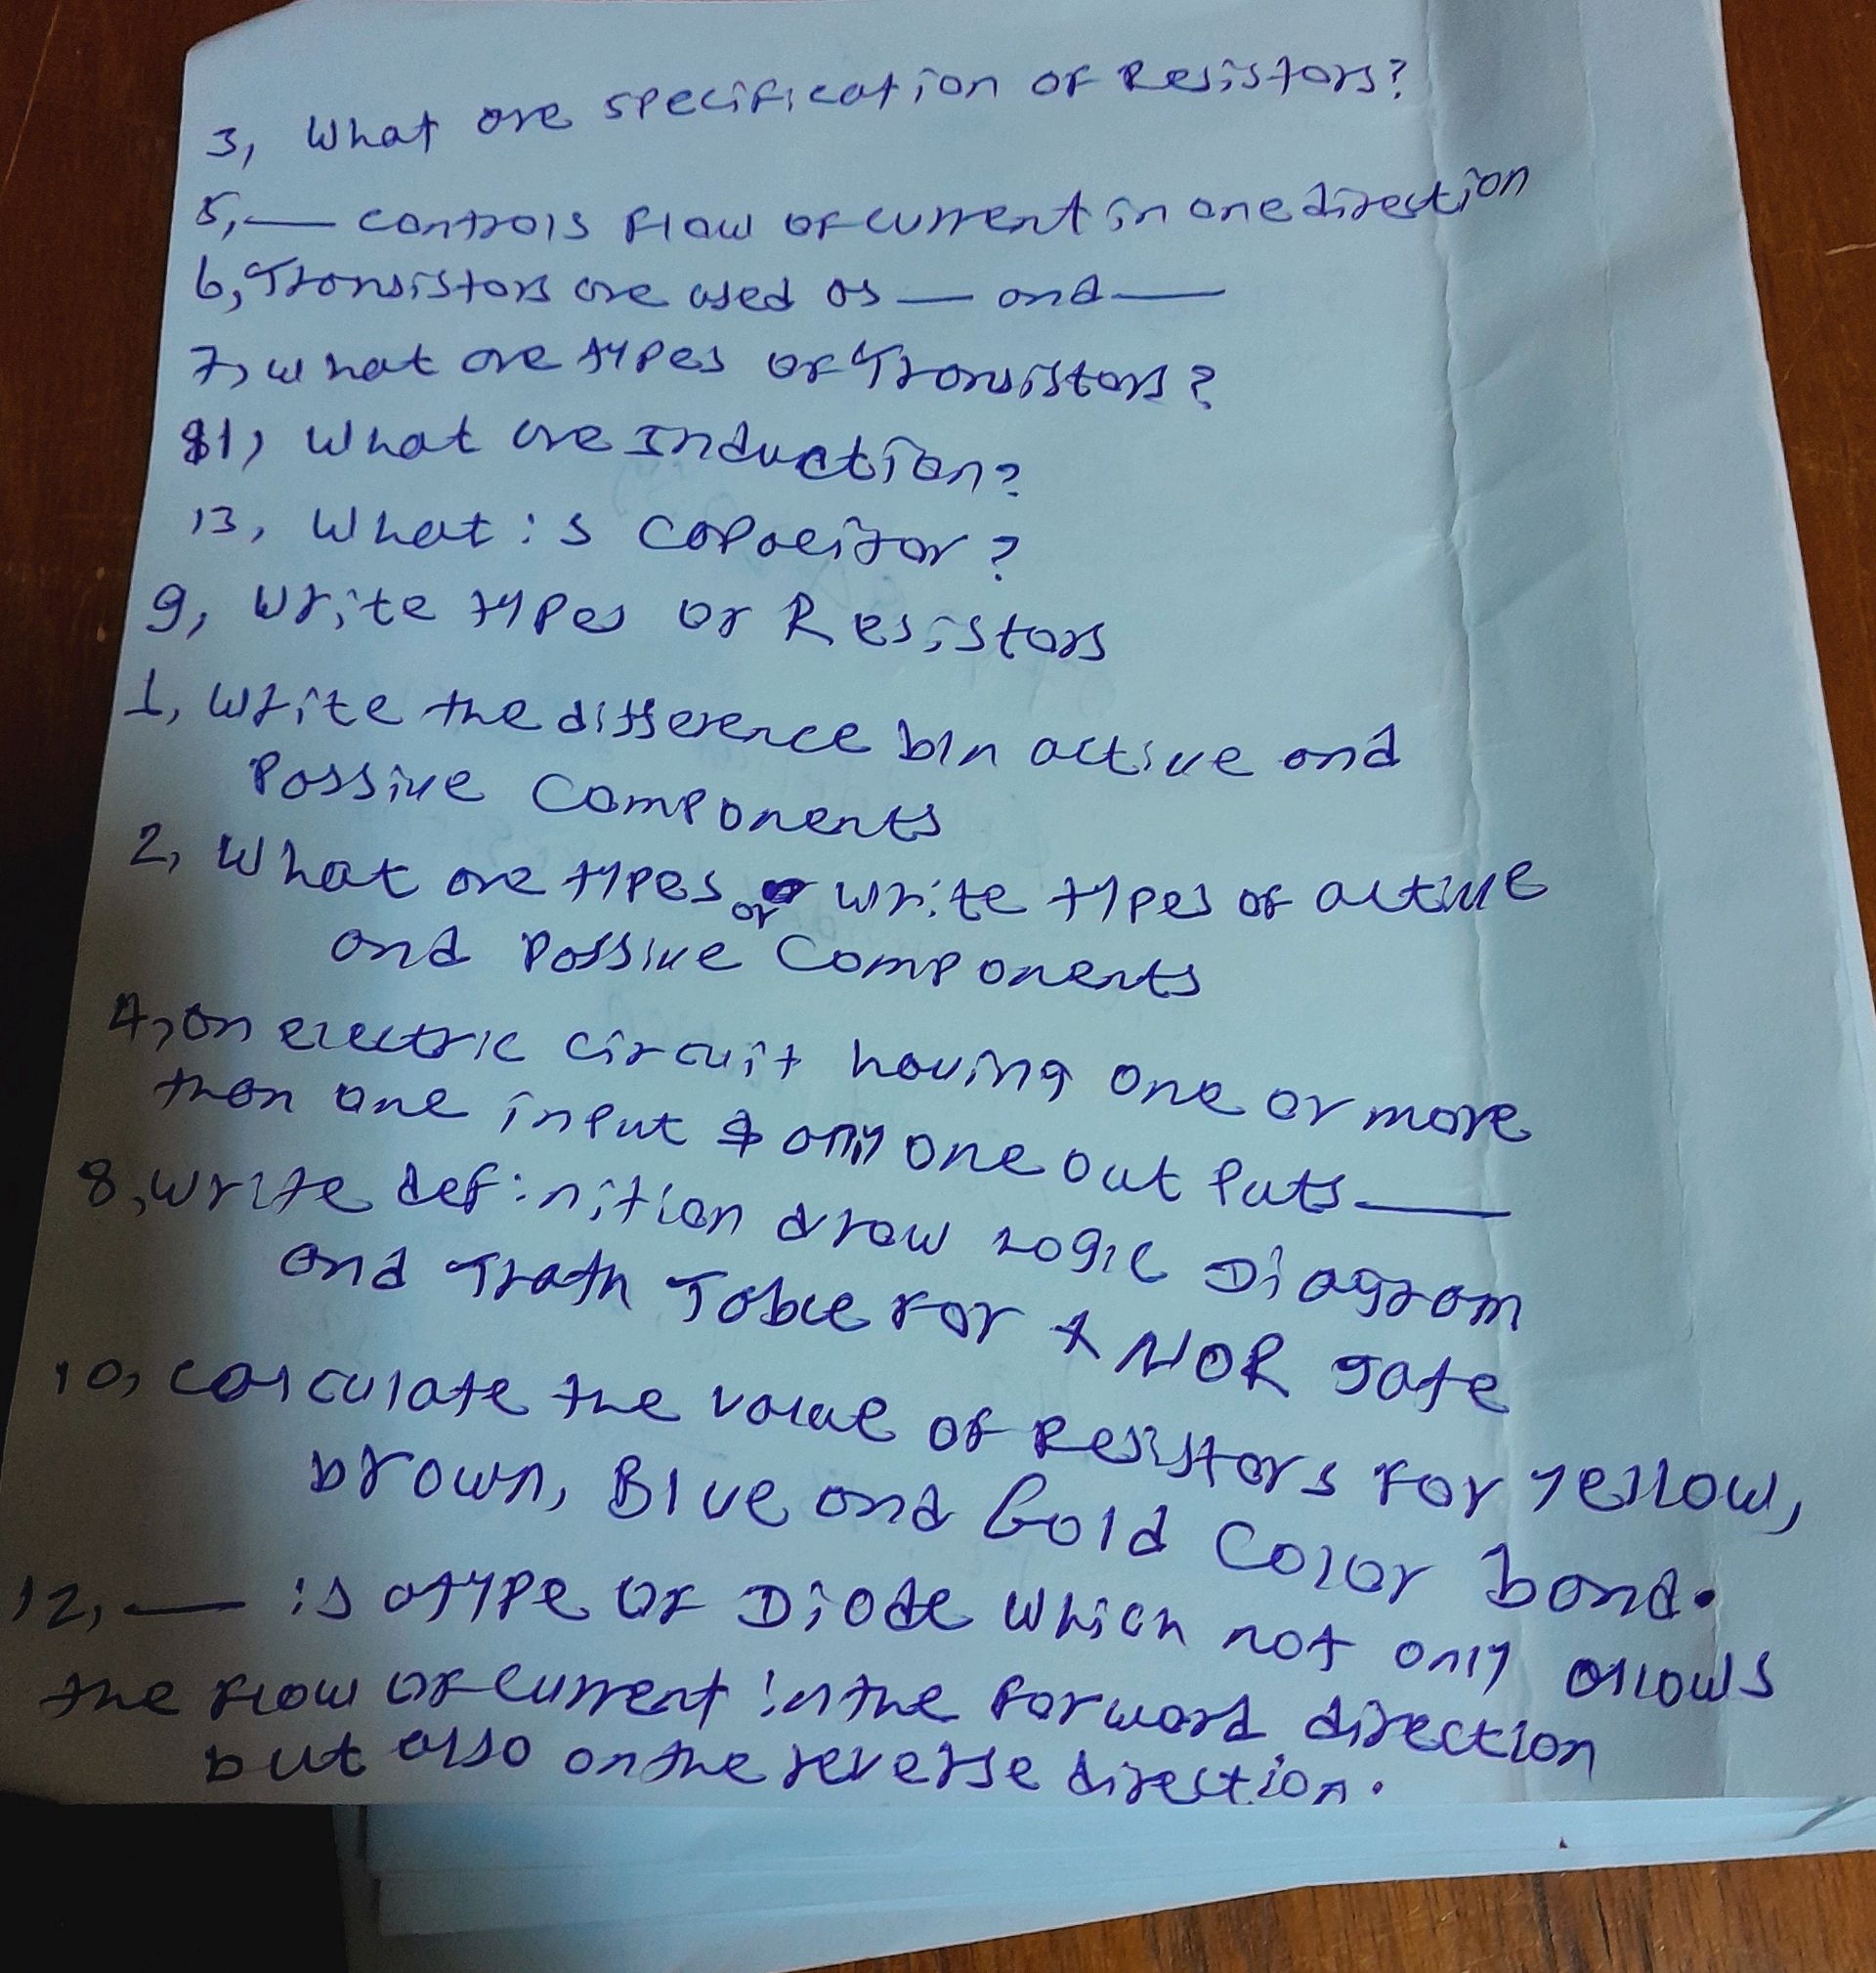 3, What are specification of Resistors?
5, — controls flow of current in one direction
6, Transistors are used as — and —
7, what are types of Transistors?
11, What are Induction?
13, What is Capacitor?
9, Write types of Resistors
1, Write the difference b/n active and
Passive Components
2, What are types or write types of active
and Passive Components
4, an electric circuit having one or more
than one input & only one out puts —
8, write definition draw Logic Diagram
and Truth Table For XNOR gate
10, Calculate the value of Resistors For yellow,
brown, Blue and Gold Color band.
12, — is a type of Diode which not only allows
the flow of current in the forward direction
but also on the reverse direction.